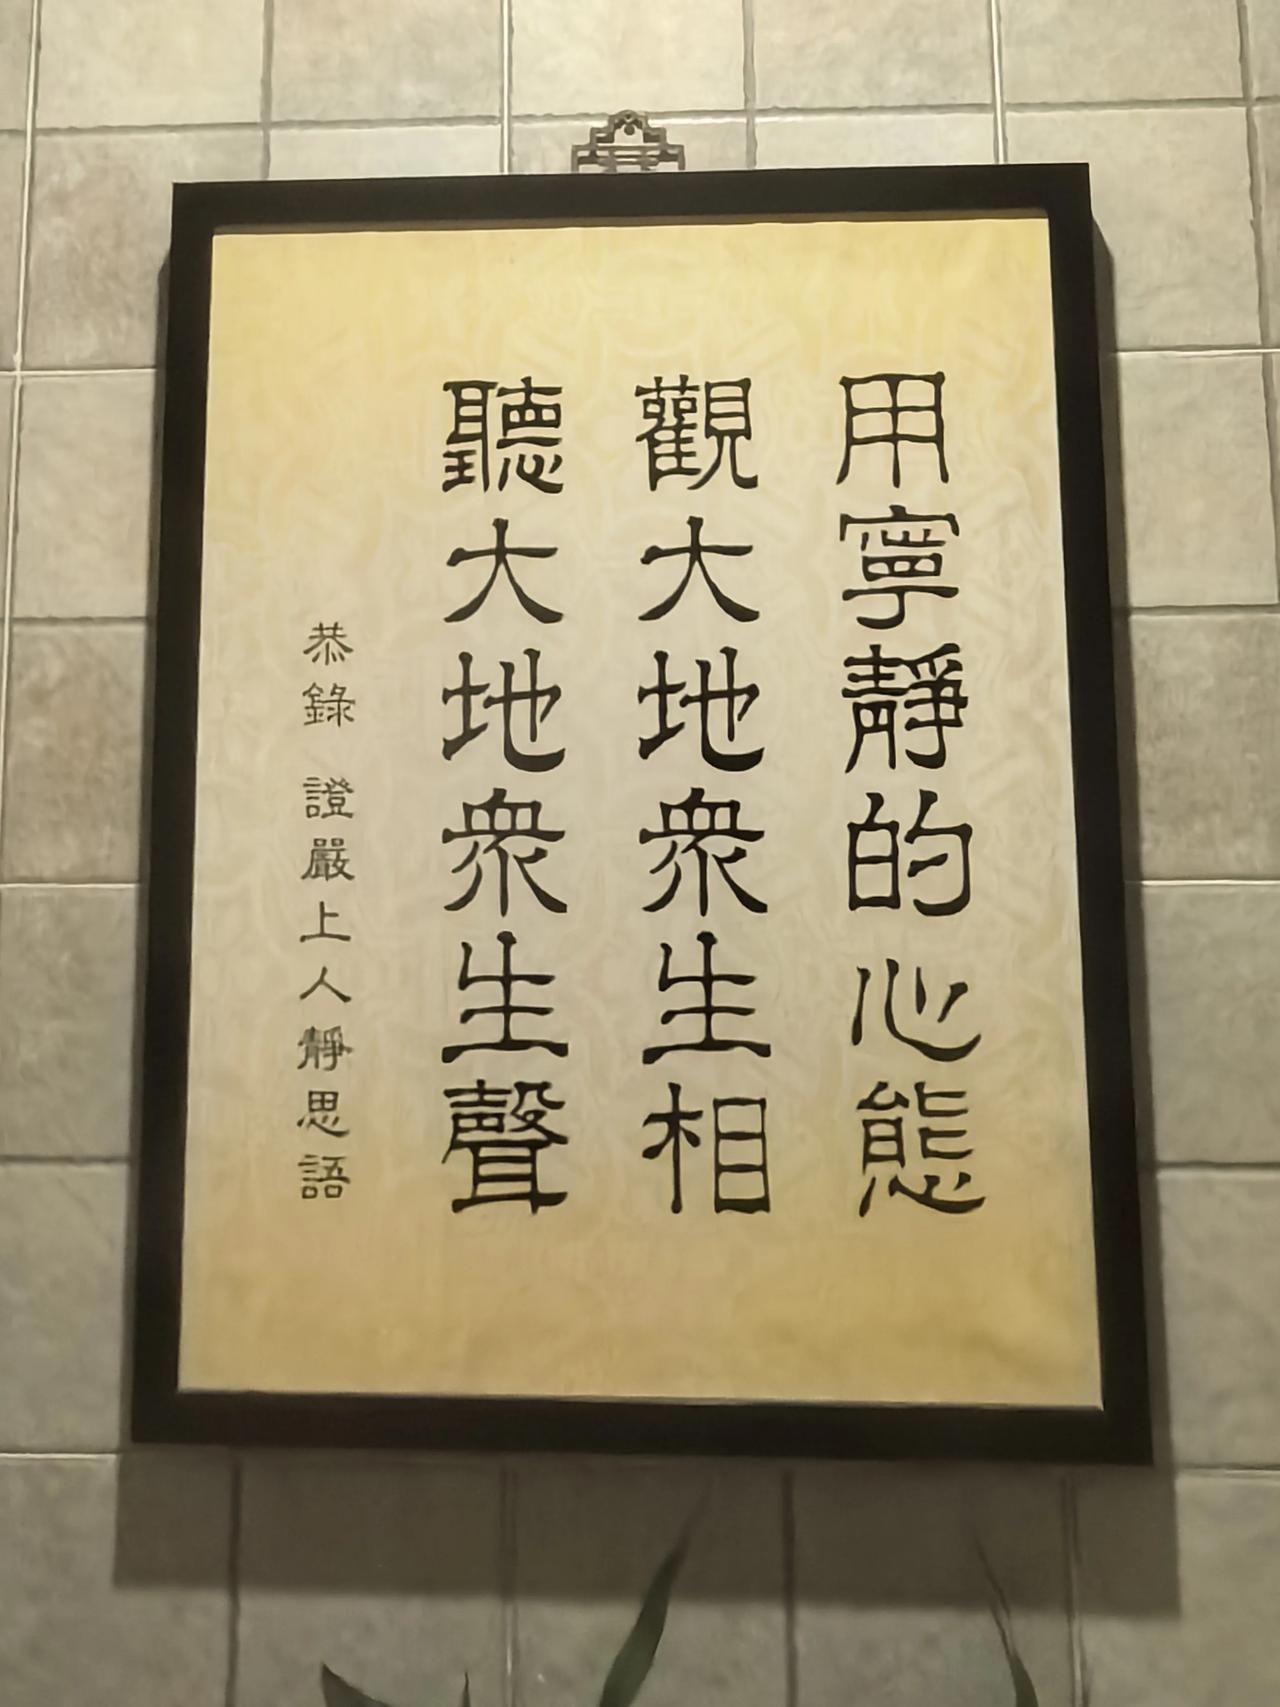 用寧靜的心態
觀大地眾生相
聽大地眾生聲
恭錄 證嚴上人靜思語